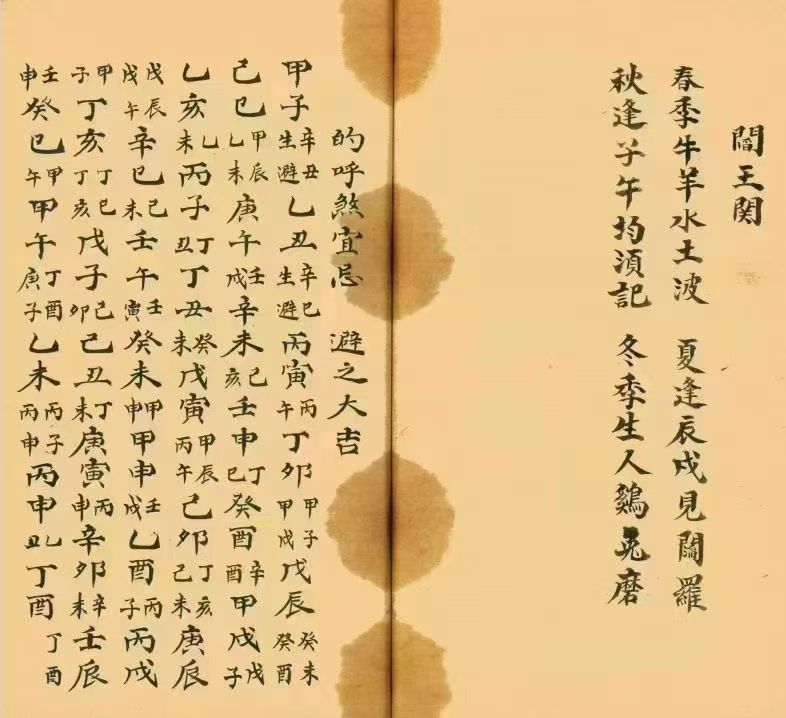 閻王関
春季牛羊水土波 夏逢辰戌見閻羅
秋逢子午均湏記 冬季生人鷄兎磨
的呼煞宜忌 避之大吉
甲子辛丑生避乙丑辛巳生避丙寅丙午丁卯甲子甲戌戊辰癸未癸酉
己巳甲辰乙未庚午壬戌辛未己亥壬申丁巳癸酉辛酉甲戌戊子
乙亥乙未丙子丁丑丁丑癸未戊寅甲辰丙午己卯丁亥己未庚辰
戊辰戊午辛巳己未壬午壬寅癸未甲申甲申壬戌乙酉丙子丙戌
甲子丁亥丁巳丁亥戊子己卯己丑丁未庚寅丙申辛卯辛未壬辰
壬申癸巳甲午甲午丁酉庚子乙未丙子丙申丙申乙丑丁酉丁酉